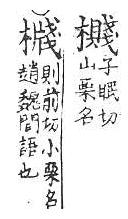 子眠切
山栗名
則前切小栗名
趙魏間語也